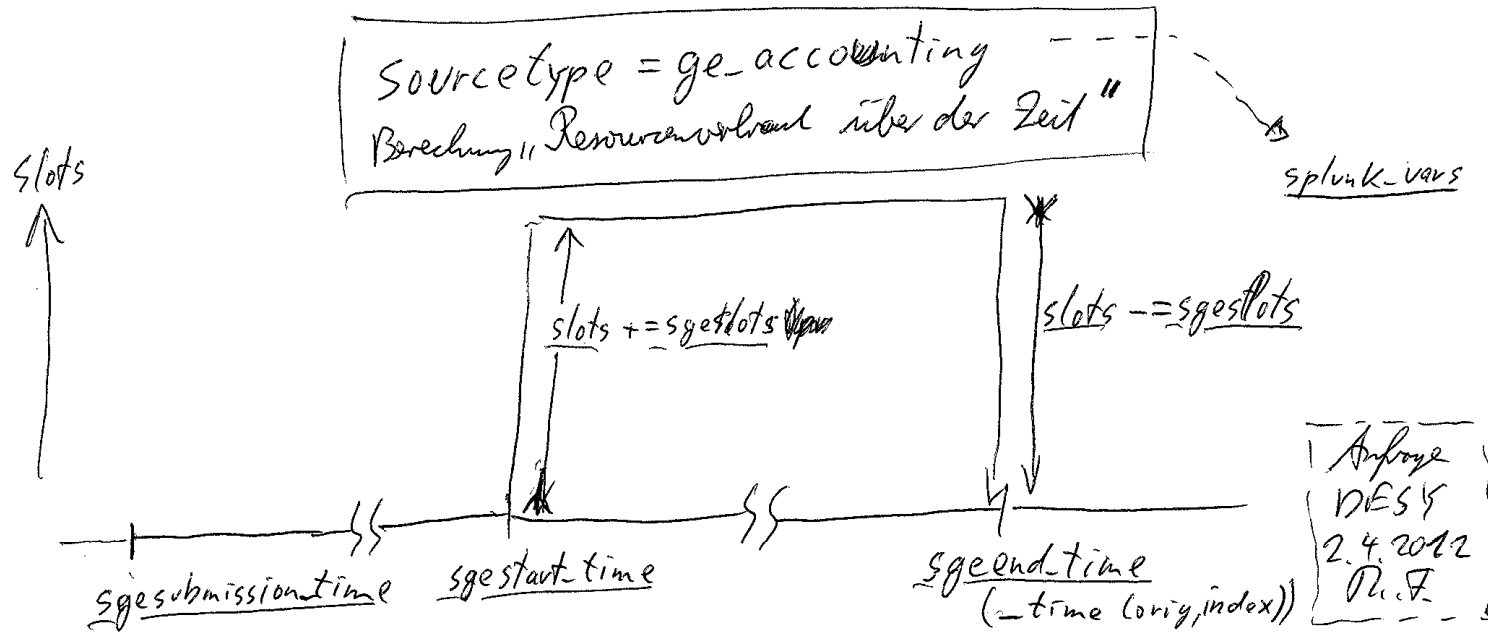 sourcetype = ge_accounting
Berechnung „Resourcenverbrauch über der Zeit"
splunk_vars
slots
slots += sgeslots
slots -= sgeslots
sgesubmission_time
sgestart_time
sgeend_time
(_time (orig, index))
Anfrage
DESY
2.4.2012